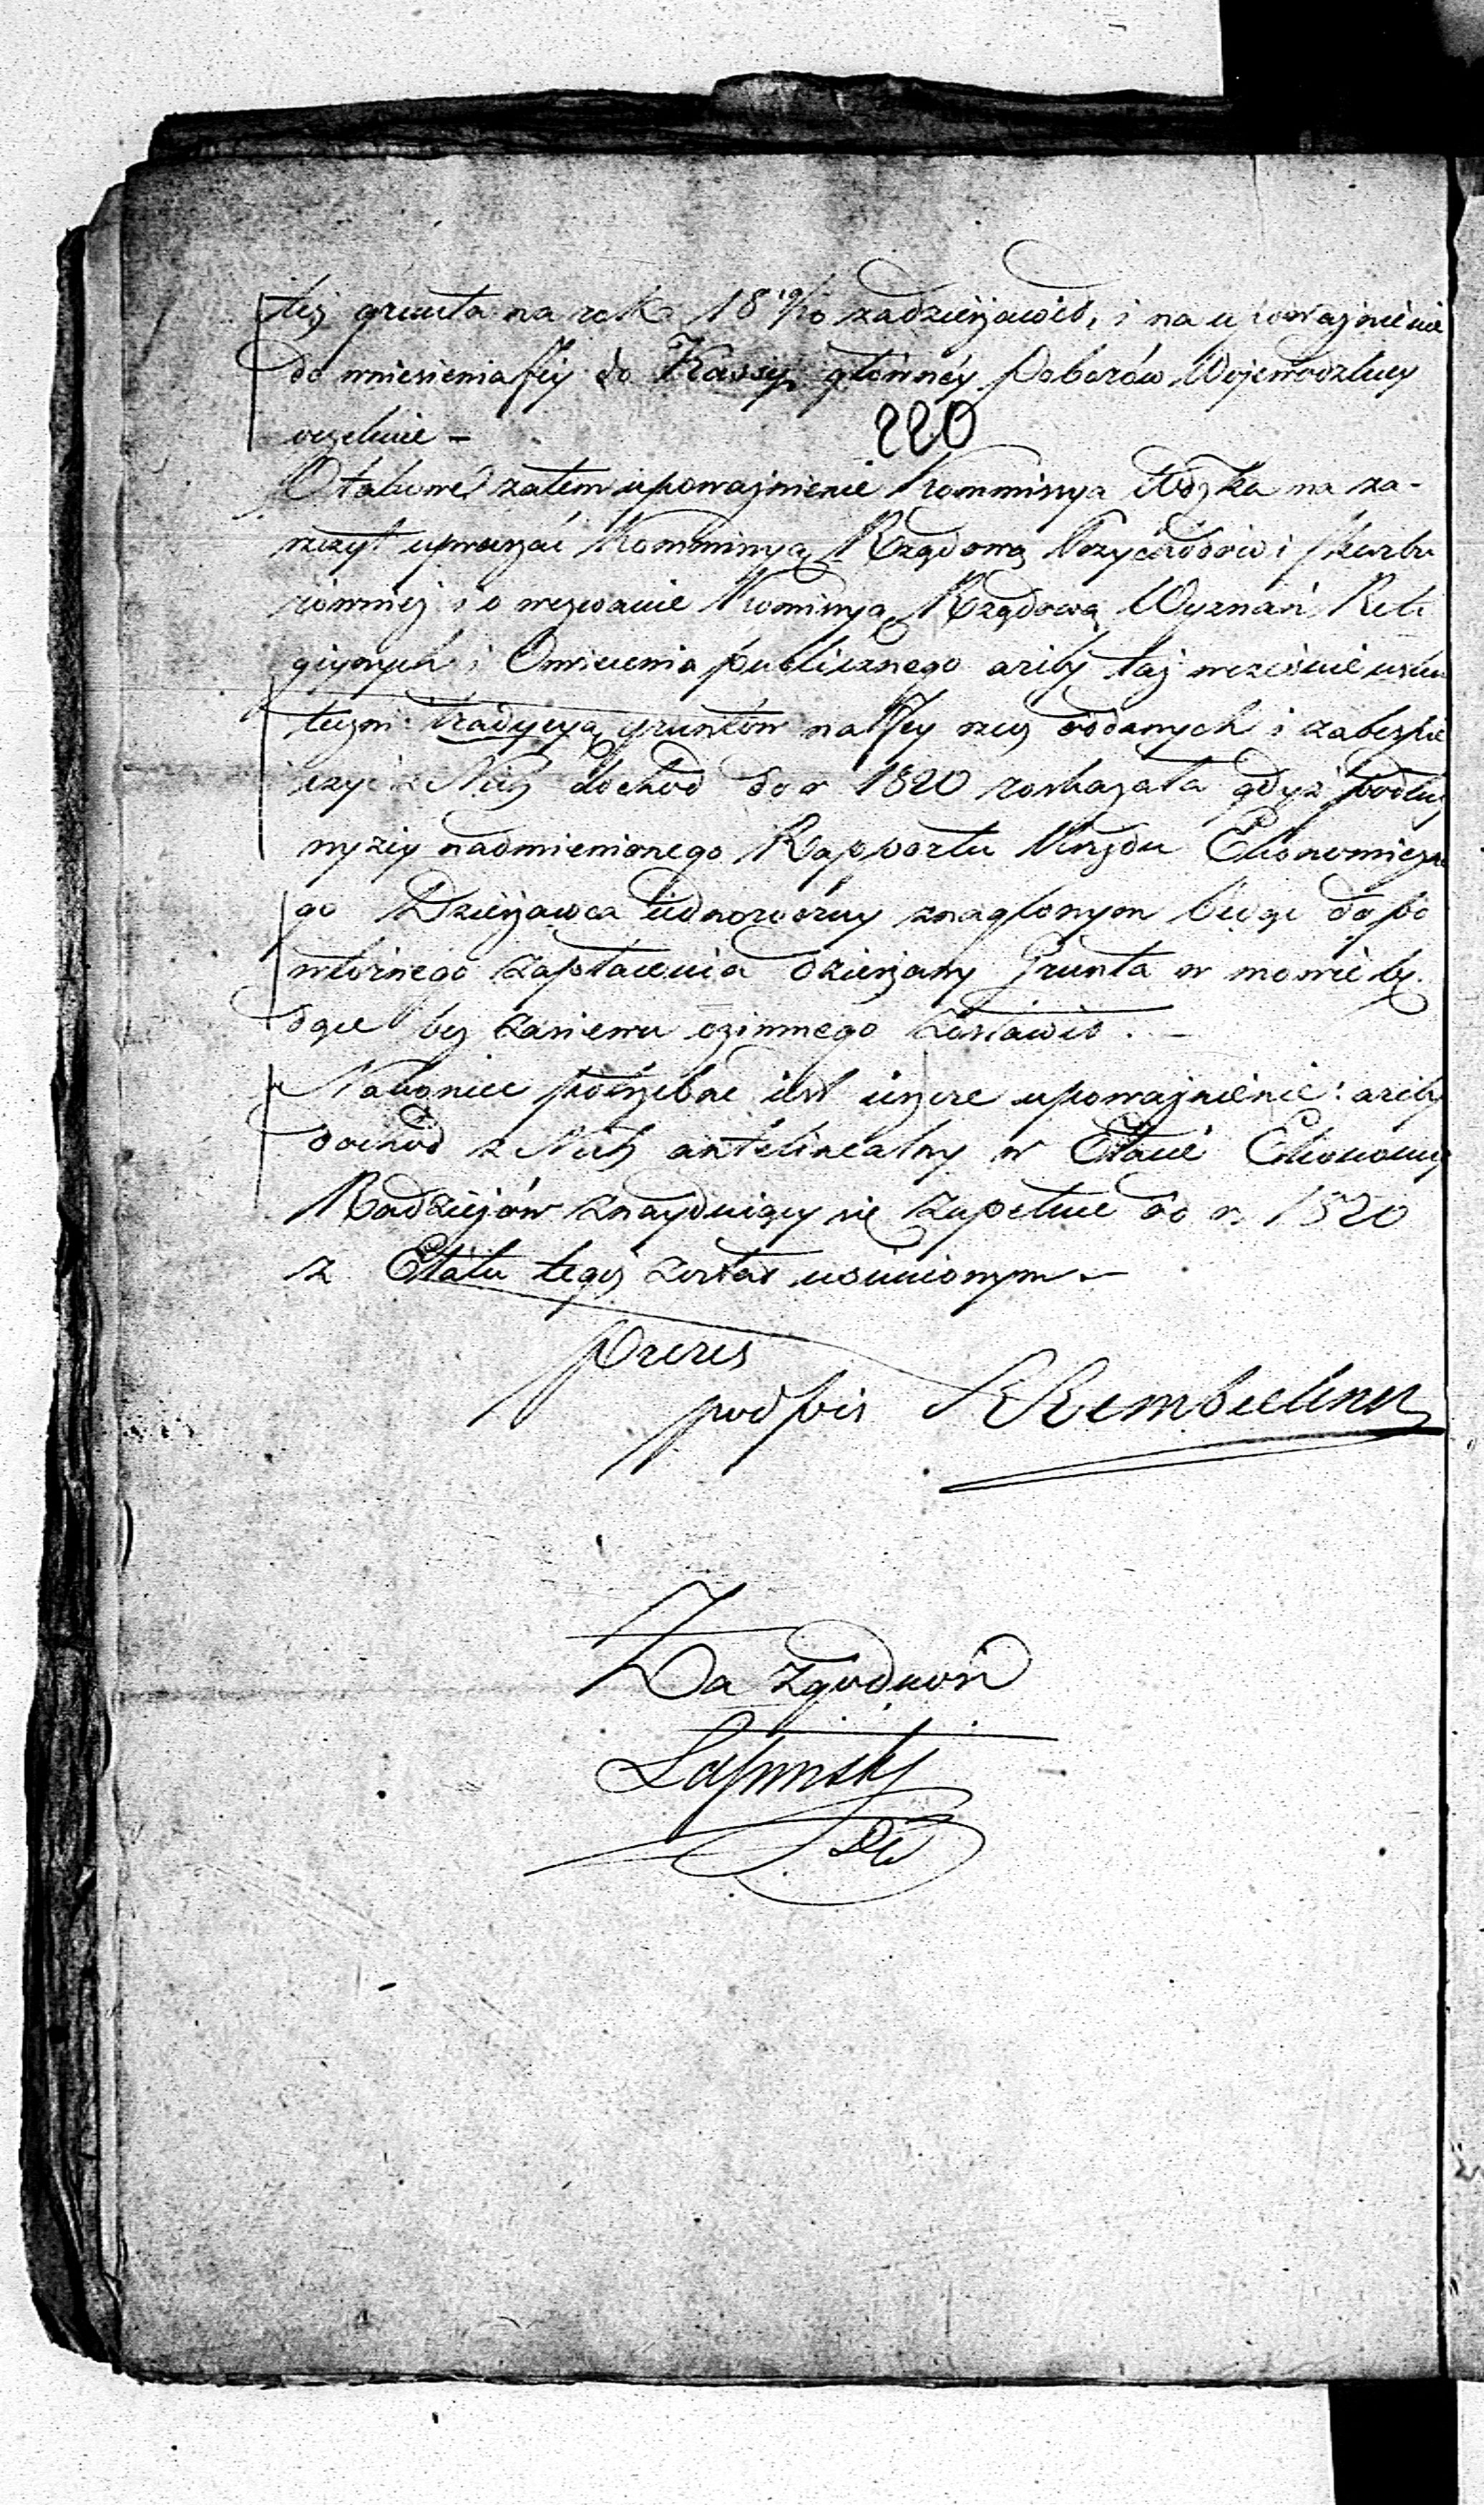 też grunta na rok 18 19/20 zadzierżawił, i na upoważnienie
do wniesienia Jey do Kassy główney Poborów Wojewodztwa
220
O takowe zatem upoważnienie Kommissya Wdzka ma za-
szczyt upraszać Kommissyą Rządową Przychodów i Skarbu
równiez i o wezwanie Kommissyą Rządową Wyznań Reli
giynych i Oswiecenia publicznego ażeby taż wcześnie usku
teczn: tradycyą gruntów na Jey rzecz oddanych i zabezpie
czyć z Nich dochod do r 1820 roskazała gdyż podług
wyżey nadmienionego Rapportu Urzędu Ekonomiczne
go Dzierżawca iednoroczny znaglonym będąc do po
wtórnego zapłacenia dzierżawy Grunta w mowie bę.
dące bez zasiewu ozimnego zostawił. —
Nakoniec potrzebne iest ieszcze upoważnienie: ażeby
dochód z Nich antelinealny w Etacie Ekonomii
Radziejów znayduiący się zupełnie od r. 1820
z Etatu tegoż został usuniony m —
Prezes
podpis R Rembielinsk
Za zgodnosć
Lapinsky